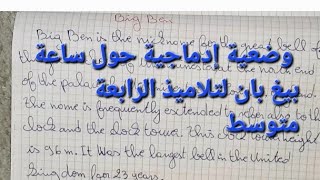 Big Ben
Big Ben is the nickname for the great bell of
وضعية إدماجية حول ساعة
the north end
of the palace
بيغ بان لتلاميذ الرابعة
The name is frequently extended to refer also to the
متوسط
clock and the clock tower. This clock tower height
is 96 m. It was the largest bell in the United
Kingdom for 23 years.